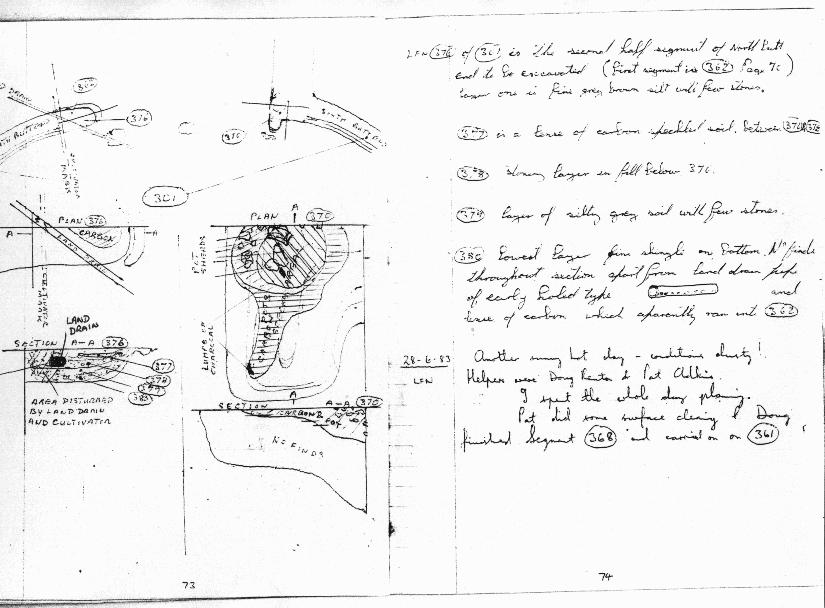 301
376
375
SOUTH BUTT
301
PLAN 376
A
A
CARBON
LAND DRAIN
LAND
DRAIN
SECTION A-A 376
377
378
379
380
AREA DISTURBED
BY LAND DRAIN
AND CULTIVATOR
A
PLAN 375
POT
SHERDS
LUMPS OF
CHARCOAL
A
SECTION A-A 375
CARBON
POT
NO FINDS
73
LEN 376 of 301 is the second half segment of North Butt
end to be excavated (First segment is 362 Page 70)
layer one is fine grey brown silt with few stones.
377 is a lense of carbon speckled soil, between 376
378 stoney layer in fill below 376.
379 layer of silty grey soil with few stones.
380 Lowest layer fine shingle on bottom. No finds
throughout section apart from land drain pipe
of early holed type and
lense of carbon which aparently ran into 362
28-6-83 Another sunny hot day - conditions dusty!
LEN Helpers were Doug & Pat
I spent the whole day planing.
Pat did some surface clearing & Doug
finished Segment 368 and carried on on 361
74